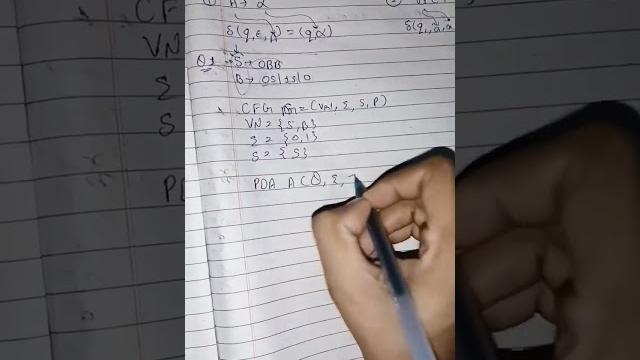 ① A → α
δ(q, ε, A) = (q, α)
δ(q, a, a
Q1 → S → 0BB
B → 0S | 1S | 0
CFG = (VN, Σ, S, P)
VN = {S, B}
Σ = {0, 1}
S = {S}
PDA A (Q, Σ,